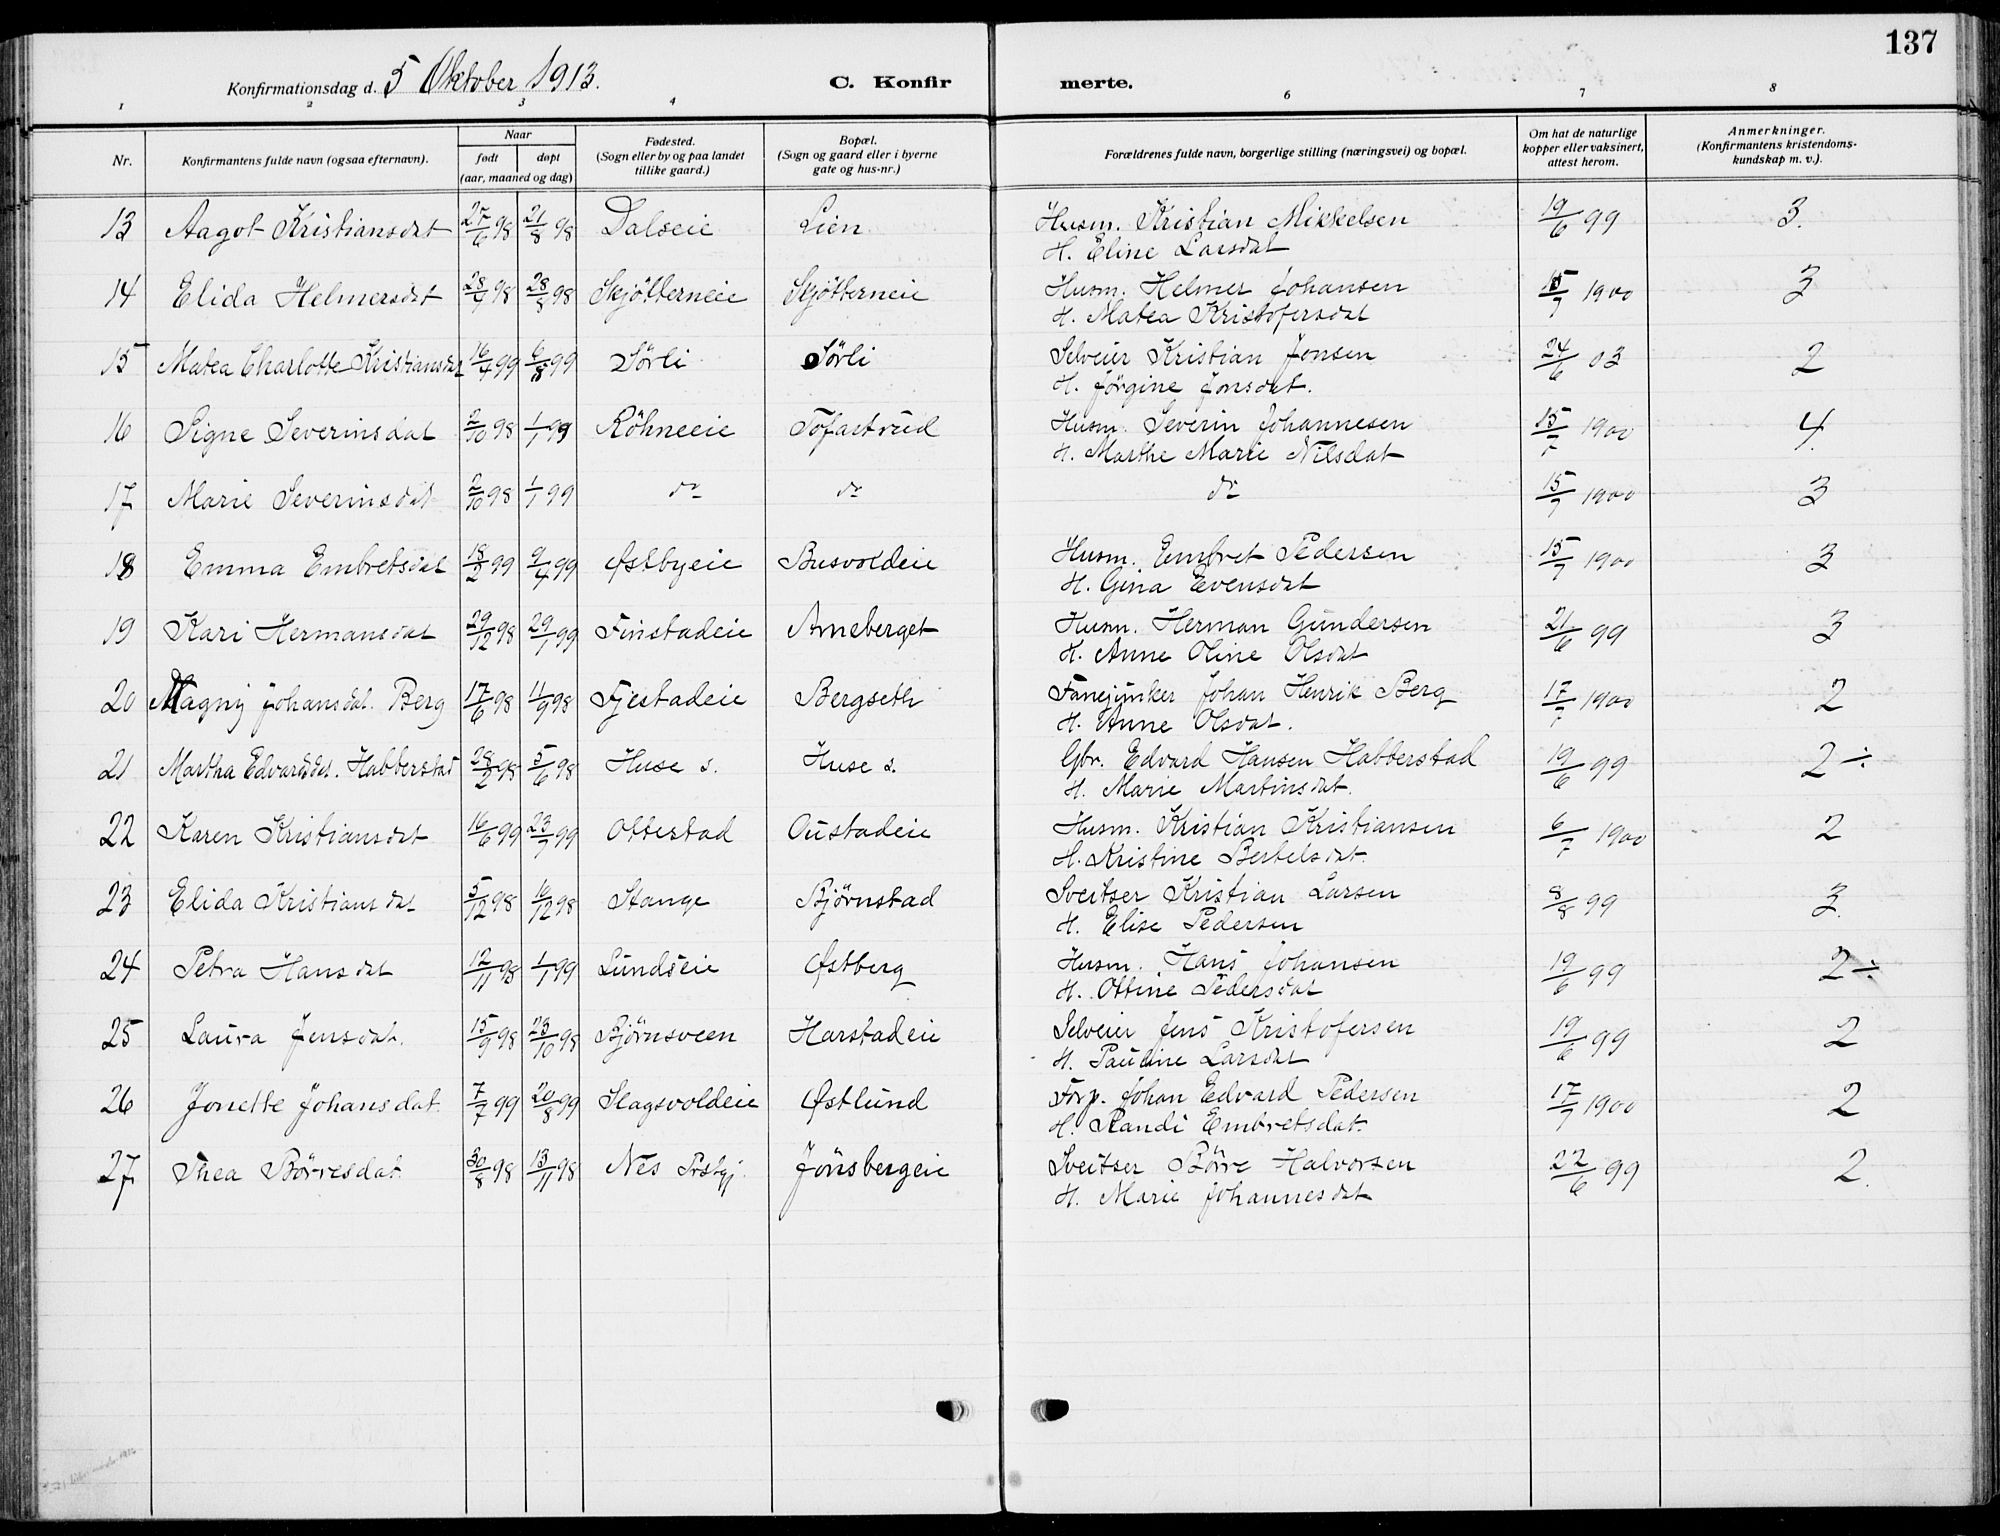 137
Konfirmationsdag d. 5 Oktober 1913. C. Konfirmerte.
1 2 3 4 6 7 8
Nr. Konfirmantens fulde navn (ogsaa efternavn). Naar født døpt (aar, maaned og dag) Fødested. (Sogn eller by og paa landet tillike gaard.) Bopæl. (Sogn og gaard eller i byerne gate og hus-nr.) Forældrenes fulde navn, borgerlige stilling (næringsvei) og bopæl. Om hat de naturlige kopper eller vaksinert, attest herom. Anmerkninger. (Konfirmantens kristendomskundskap m. v.).
13 Aagot Kristiansdat 27/6 98 21/8 98 Dalseie Lien Husm. Kristian Mikkelsen 19/6 99 3.
H. Eline Larsdat
14 Elida Helmersdat 28/7 98 28/8 98 Skjötterneie Skjötterneie Husm. Helmer Johansen 15/7 1900 3
H. Matea Kristofersdat
15 Matea Charlotte Kristiansdat 16/7 99 6/8 99 Sörli Sörli Selveier Kristian Jonsen 24/6 03 2
H. Jörgine Jonsdat.
16 Signe Severinsdat 2/10 98 1/1 99 Röhneeie Tofastrud Husm. Severin Johannesen 15/7 1900 4.
H. Marthe Marie Nilsdat
17 Marie Severinsdat 2/10 98 1/1 99 do do do 15/7 1900 3
18 Emma Embretsdat 18/2 99 9/4 99 Østbyeie Busvoldeie Husm. Embret Pedersen 15/7 1900 3
H. Gina Evensdat
19 Kari Hermansdat 29/12 98 29/1 99 Finstadeie Arneberget Husm. Herman Gundersen 21/6 99 3
H. Anne Oline Olsdat
20 Magny Johansdat. Berg 17/6 98 11/9 98 Fjestadeie Bergseth Fanejunker Johan Henrik Berg 17/7 1900 2
H. Anne Olsdat.
21 Martha Edvardsdat. Habberstad 28/2 98 5/6 98 Huse s. Huse s. Gbr. Edvard Hansen Habberstad 19/6 99 2÷
H. Marie Martinsdat.
22 Karen Kristiansdat 16/6 99 23/7 99 Ottestad Oustadeie Husm. Kristian Kristiansen 6/7 1900 2
H. Kristine Bertelsdat.
23 Elida Kristiansdat 5/12 98 16/12 98 Stange Bjørnstad Sveitser Kristian Larsen 8/8 99 3.
H. Elise Pedersen
24 Petra Hansdat 12/11 98 1/1 99 Lundseie Østberg Husm. Hans Johansen 19/6 99 2÷
H. Ottine Pedersdat
25 Laura Jensdat. 15/9 98 23/10 98 Bjørnsveen Harstadeie Selveier Jens Kristofersen 19/6 99 2
H. Pauline Larsdat
26 Jonette Johansdat. 7/7 99 20/8 99 Slagsvoldeie Østlund Forp. Johan Edvard Pedersen 17/7 1900 2
H. Randi Embretsdat.
27 Thea Börresdat. 30/8 98 13/11 98 Nes Prstgj. Jönsbergeie Sveitser Börre Halvorsen 22/6 99 2.
H. Marie Johannesdat